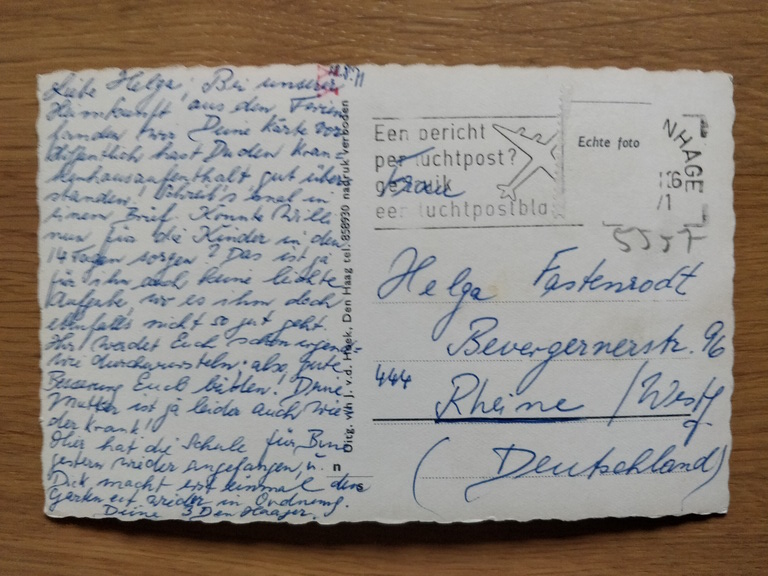 18.8.71
Liebe Helga, Bei unserer
Heimkunft aus den Ferien
fanden wir Deine Karte vor.
Hoffentlich hast Du den Kran-
kenhausaufenthalt gut über-
standen! Schreib's mal in
einem Brief. Konnte Willi
nun für die Kinder in den
14 Tagen sorgen? Das ist ja
für ihn auch keine leichte
Aufgabe, wo es ihm doch
ebenfalls nicht so gut geht.
Ihr werdet Euch schon irgend-
wie durchwursteln; also, gute
Besserung Euch beiden! Deine
Mutter ist ja leider auch wie-
der krank!
Hier hat die Schule für
gestern wieder angefangen, u.
Dick macht erst einmal den
Garten wieder in Ordnung.
Deine 3 Den Haager.
Uitg. v/h J. v.d. Hoek, Den Haag tel. 858930 nadruk verboden
Een bericht
per luchtpost?
gebruik
een luchtpostbla
Echte foto
NHAGE
5557
Helga Fastenrodt
Bevergernerstr. 96
444 Rheine /Westf
(Deutschland)